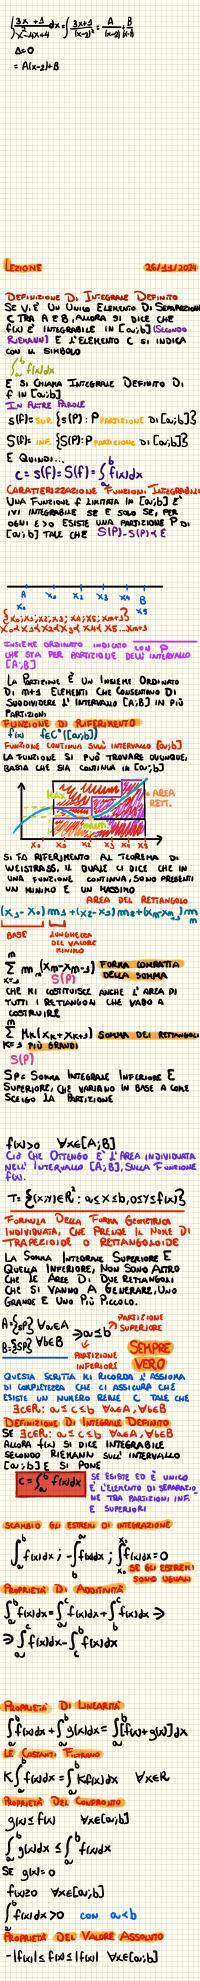 ∫ (3x+1)/(x²-4x+4) dx = ∫ (3x+1)/(x-2)² = A/(x-2) + B/(x-2)²
Δ=0
= A(x-2)+B
LEZIONE 26/11/2024
DEFINIZIONE DI INTEGRALE DEFINITO
SE V. È UN UNICO ELEMENTO DI SEPARAZIONE
C TRA A E B, ALLORA SI DICE CHE
f(x) È INTEGRABILE IN [a;b] (SECONDO
RIEMANN) E L'ELEMENTO C SI INDICA
CON IL SIMBOLO
∫ₐᵇ f(x)dx
E SI CHIAMA INTEGRALE DEFINITO DI
f IN [a;b]
IN ALTRE PAROLE
s(f)= SUP. {s(P): P PARTIZIONE DI [a;b]}
S(f)= INF. {S(P): P PARTIZIONE DI [a;b]}
E QUINDI...
c = s(f) = S(f) = ∫ₐᵇ f(x)dx
CARATTERIZZAZIONE FUNZIONI INTEGRABILI
UNA FUNZIONE f LIMITATA IN [a;b] È
IVI INTEGRABILE SE E SOLO SE, PER
OGNI ε>0 ESISTE UNA PARTIZIONE P DI
[a;b] TALE CHE S(P)-s(P)<ε
A X₁ X₂ X₃ X₄ B
X₀ X₅
{X₀;X₁;X₂;X₃;X₄;X₅;Xm+1}
X₀<X₁<X₂<X₃<X₄<X₅...Xm+1
INSIEME ORDINATO INDICATO CON P
CHE STA PER PARTIZIONE DELL'INTERVALLO
[A;B]
LA PARTIZIONE È UN INSIEME ORDINATO
DI m+1 ELEMENTI CHE CONSENTONO DI
SUDDIVIDERE L'INTERVALLO [A;B] IN PIÙ
PARTIZIONI
FUNZIONE DI RIFERIMENTO
f(x) f∈C°([a;b])
FUNZIONE CONTINUA SULL'INTERVALLO [a;b]
LA FUNZIONE SI PUÒ TROVARE OVUNQUE,
BASTA CHE SIA CONTINUA IN [a;b]
AREA
RETT.
X₀ X₁ X₂ X₃ X₄ X₅
SI FA RIFERIMENTO AL TEOREMA DI
WEISTRASS, IL QUALE CI DICE CHE IN
UNA FUNZIONE CONTINUA, SONO PRESENTI
UN MINIMO E UN MASSIMO
AREA DEL RETTANGOLO
(X₁-X₀)m₁+(X₂-X₁)m₂+(Xm-Xm-1)m
BASE LUNGHEZZA
DEL VALORE
MINIMO
FORMA COMPATTA
DELLA SOMMA
s(P)
CHE MI COSTITUISCE ANCHE L'AREA DI
TUTTI I RETTANGOLI CHE VADO A
COSTRUIRE
Σ Mk(Xk+Xk+1) SOMMA DEI RETTANGOLI
K=1 PIÙ GRANDI
S(P)
SP= SOMMA INTEGRALE INFERIORE E
SUPERIORE, CHE VARIANO IN BASE A COME
SCELGO LA PARTIZIONE
f(x)>0 ∀x∈[A;B]
CIÒ CHE OTTENGO È L'AREA INDIVIDUATA
NELL'INTERVALLO [A;B], SULLA FUNZIONE
f(x).
T={(x;y)∈R²: a≤x≤b,0≤y≤f(x)}
FORMULA DELLA FORMA GEOMETRICA
INDIVIDUATA, CHE PRENDE IL NOME DI
TRAPEZOIDE O RETTANGOLOIDE
LA SOMMA INTEGRALE SUPERIORE E
QUELLA INFERIORE, NON SONO ALTRO
CHE LE AREE DI DUE RETTANGOLI
CHE SI VANNO A GENERARE, UNO
GRANDE E UNO PIÙ PICCOLO.
PARTIZIONE
SUPERIORE
A={sP} ∀a∈A
B={SP} ∀b∈B
⇒a≤b
SEMPRE
VERO
PARTIZIONE
INFERIORE
QUESTA SCRITTA MI RICORDA L'ASSIOMA
DI COMPLETEZZA CHE CI ASSICURA CHE
ESISTE UN NUMERO REALE C, TALE CHE
∃c∈R: a≤c≤b ∀a∈A,∀b∈B
DEFINIZIONE DI INTEGRALE DEFINITO
SE ∃c∈R: a≤c≤b ∀a∈A,∀b∈B
ALLORA f(x) SI DICE INTEGRABILE
SECONDO RIEMANN SULL'INTERVALLO
[a;b] E SI PONE
c=∫ₐᵇ f(x)dx
SE ESISTE ED È UNICO
È L'ELEMENTO DI SEPARAZIO
NE TRA PARTIZIONI INF.
E SUPERIORI
SCAMBIO GLI ESTREMI DI INTEGRAZIONE
∫ₐᵇ f(x)dx ; -∫ f(x)dx ; ∫ f(x)dx=0
SE GLI ESTREMI
SONO UGUALI
PROPRIETÀ DI ADDITIVITÀ
∫ₐᵇ f(x)dx=∫ₐᶜ f(x)dx+∫ f(x)dx ⇒
⇒ ∫ f(x)dx-∫ f(x)dx
PROPRIETÀ DI LINEARITÀ
∫ₐᵇ f(x)dx+∫ₐᵇ g(x)dx=∫ₐᵇ [f(x)+g(x)]dx
LE COSTANTI FILTRANO
K∫ₐᵇ f(x)dx=∫ₐᵇ Kf(x)dx ∀x∈R
PROPRIETÀ DEL CONFRONTO
g(x)≤f(x) ∀x∈[a;b]
∫ₐᵇ g(x)dx ≤ ∫ₐᵇ f(x)dx
SE g(x)=0
f(x)≥0 ∀x∈[a;b]
∫ₐᵇ f(x)dx >0 CON a<b
PROPRIETÀ DEL VALORE ASSOLUTO
-|f(x)|≤f(x)≤|f(x)| ∀x∈[a;b]